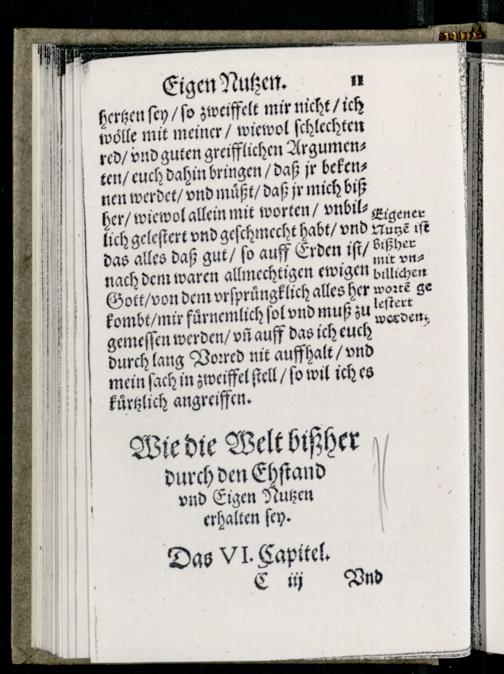 Eigen Nutzen. 11
hertzen sey / so zweiffelt mir nicht / ich
wölle mit meiner / wiewol schlechten
red / vnd guten greifflichen Argumen-
ten / euch dahin bringen / daß jr beken-
nen werdet / vnd müßt / daß jr mich biß
her / wiewol allein mit worten / vnbil-
lich gelestert vnd geschmecht habt / vnd
das alles daß gut / so auff Erden ist /
nach dem waren allmechtigen ewigen
Gott / von dem vrsprüngklich alles her
kombt / mir fürnemlich sol vnd muß zu
gemessen werden / vñ auff das ich euch
durch lang Vorred nit auffhalt / vnd
mein sach in zweiffel stell / so wil ich es
kürtzlich angreiffen.
Eigener
Nutzẽ ist
bißher
mit vn-
billichen
wortẽ ge
lestert
worden.
Wie die Welt bißher
durch den Ehstand
vnd Eigen Nutzen
erhalten sey.
Das VI. Capitel.
C iij Vnd